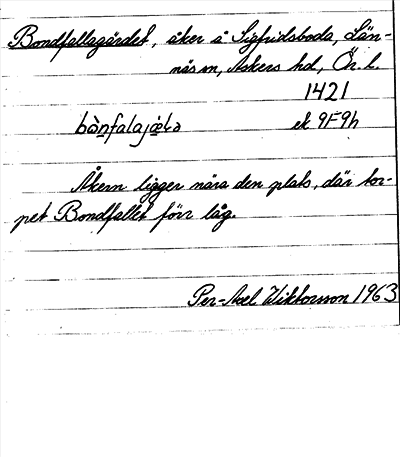 Bondfallagärdet, åker å Sigfridsboda, Län-
näs sn, Askers hd, Ör. l.
1421
bò̀nfalajæ̀Lə ek 9F9h
Åkern ligger nära den plats, där tor-
pet Bondfallet förr låg.
Per-Axel Wiktorsson 1963